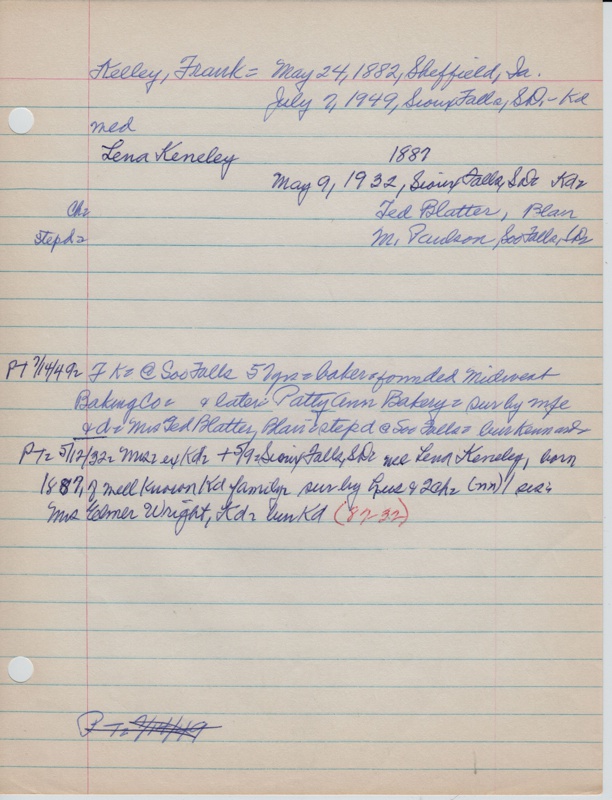 Kelley, Frank = May 24, 1882, Sheffield, Ia.
July 7, 1949, Sioux Falls, S.D. - Kd
med
Lena Keneley 1887
May 9, 1932, Sioux Falls, S.D. Kd=
Ch= Ted Blatter, Blair
stepd= M. Paulson, Soo Falls, S.D.
PT 7/14/49= F K= @ Soo Falls 57 yrs = baker = founded Midwest
Baking Co = & later Patty Ann Bakery = sur by wfe
& d= Mrs Ted Blatter, Blair = stepd @ Soo Falls = bur Kennard=
PT= 5/12/32= Mrs= ex Kd= + 5/9= Sioux Falls, S.D. nee Lena Keneley, born
1887, of well known Kd family= sur by hus & 2 ch= (nn) sis=
Mrs Elmer Wright, Kd= bur Kd (87-32)
P T= 7/14/49